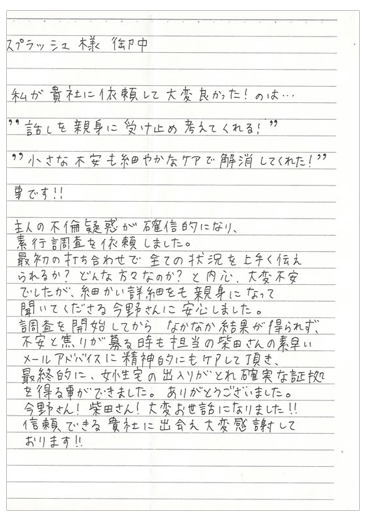 スプラッシュ様 御中
私が貴社に依頼して大変良かった!のは…
”話しを親身に受け止め考えてくれる!”
”小さな不安も細やかなケアで解消してくれた!”
事です!!
主人の不倫疑惑が確信的になり、
素行調査を依頼しました。
最初の打ち合わせで全ての状況を上手く伝え
られるか?どんな方々なのか?と内心、大変不安
でしたが、細かい詳細をも親身になって
聞いてくださる今野さんに安心しました。
調査を開始してからなかなか結果が得られず、
不安と焦りが募る時も担当の柴田さんの素早い
メールアドバイスに精神的にもケアして頂き、
最終的に、女性宅の出入りがとれ確実な証拠
を得る事ができました。ありがとうございました。
今野さん!柴田さん!大変お世話になりました!!
信頼できる貴社に出会え大変感謝して
おります!!